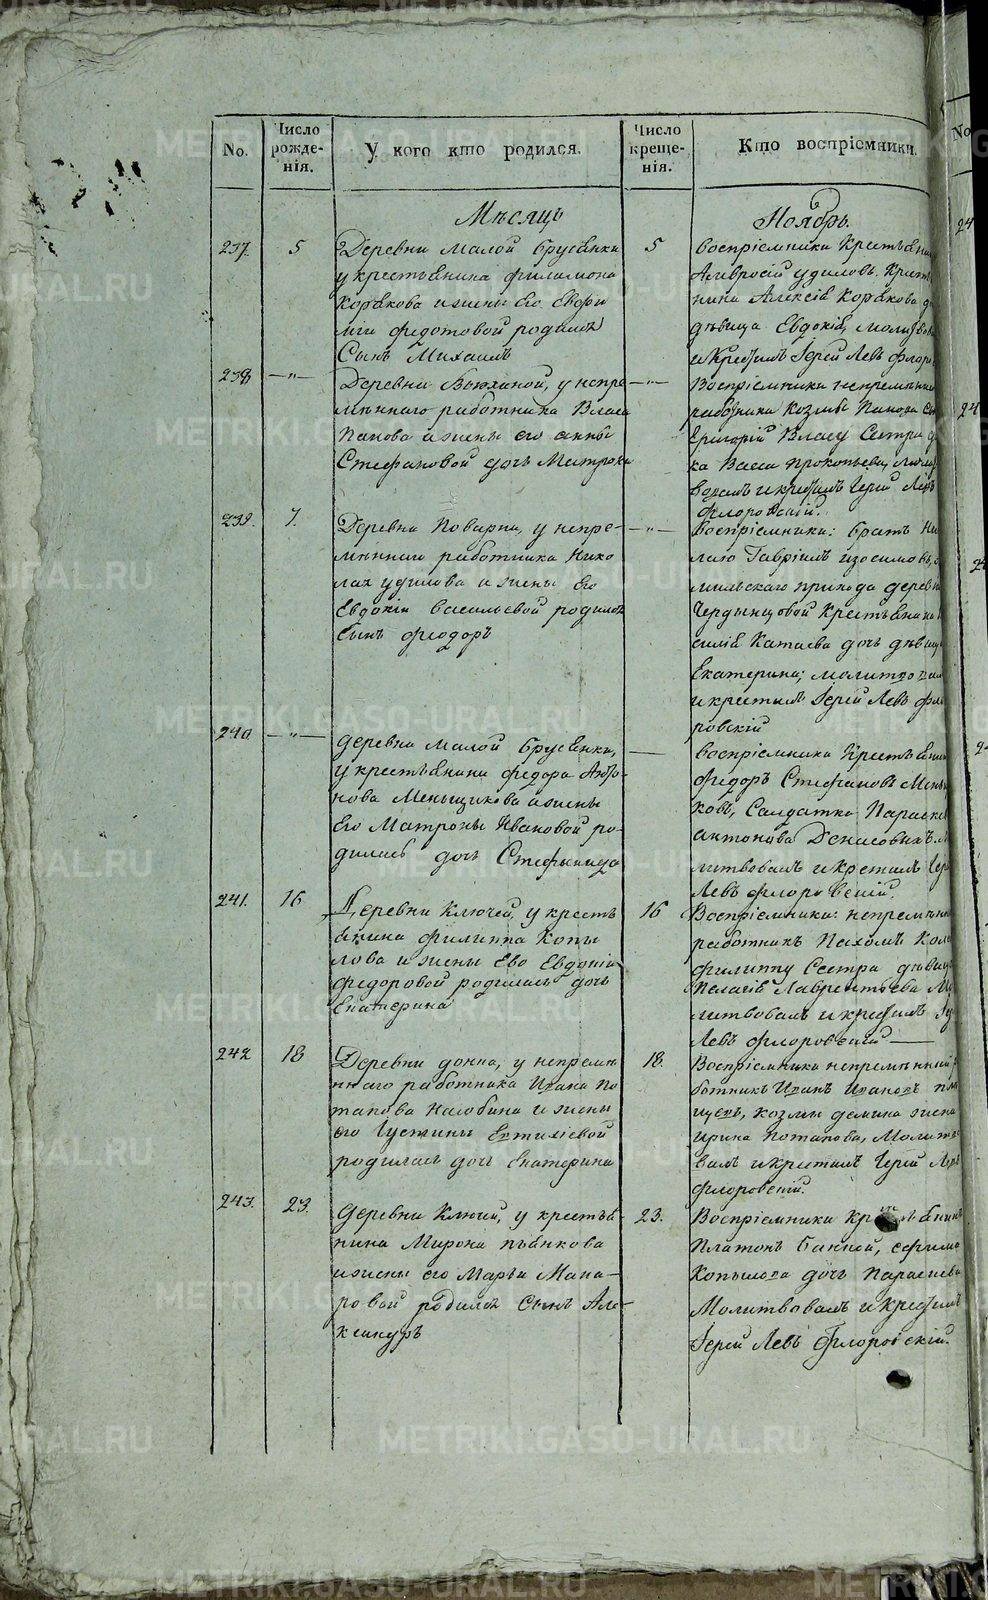 No.
Число рожденія.
У кого кто родился.
Число крещенія.
Кто воспріемники.
Мѣсяцъ
Ноябрь.
237.
5
Деревни Малой Брусянки
у крестьянина Филимона
Корякова и жены Его Евфи
міи Федотовой родился
Сынъ Михаилъ
5
воспріемники Крестьянинъ
Амвросій Удиловъ. Кресть
нина Алексія Корякова
дѣвица Евдокія, молитвов
и Крестилъ Іерей Левъ Флоро
238
—"—
Деревни у непре
мѣннаго работника Власа
Панова и жены его Анны
Стефановой дочь Матрона
—"—
Воспріемники непремѣннаго
работника Козмы Панова
Григорій Власу Сестра
Васса Прокопьева,
и крестилъ Іерей Левъ
Флоровскій.
239.
7.
Деревни Поварни, у непре-
мѣннаго работника Нико
лая Удилова и жены Его
Евдокіи Васильевой родился
сынъ Феодоръ
—"—
Воспріемники: братъ Ни
лаю Гавріилъ Изосимовъ,
прихода дерев
Чердынцовой Крестьянина
Катаева дочь дѣвица
Екатерина; молитвовалъ
и крестилъ Іерей Левъ Фло
ровскій
240.
—"—
деревни Малой Брусянки,
у крестьянина Федора
нова Меньщикова и жены
Его Матроны Ивановой ро-
дилась дочь Стефанида
—
воспріемники Крестьянинъ
Федоръ Стефановъ Меньщи
ковъ, Салдатка Параскев
Антонова Денисовыхъ.
литвовалъ и крестилъ Іерей
Левъ Флоровскій.
241.
16
Деревни Ключей, у кресть
янина Филиппа Копы
лова и жены Ево Евдокіи
Федоровой родилась дочь
Екатерина
16
Воспріемники: непремѣнный
работникъ Пахомъ
Филиппу Сестра дѣвица
Пелагія Лаврентьева Мо
литвовалъ и крестилъ Іер
Левъ Флоровскій —
242
18
Деревни у непремѣ
ннаго работника Ивана По
тапова и жены
его Іустины Евтихіевой
родилась дочь Екатерина
18.
Воспріемники непремѣнный
ботникъ Иванъ Ивановъ
козмы Демина жена
Ирина Потапова, Молитв
валъ и крестилъ Іерей Левъ
Флоровскій.
243.
23.
Деревни Ключей, у крестья-
нина Мирона Пьянкова
и жены его Марьи Мака-
ровой родился Сынъ Але-
ксандръ
23.
Воспріемники Крестьянинъ
Платонъ
Копылова дочь Параскева
Молитвовалъ и крестилъ
Іерей Левъ Флоровскій.
METRIKI.GASO-URAL.RU